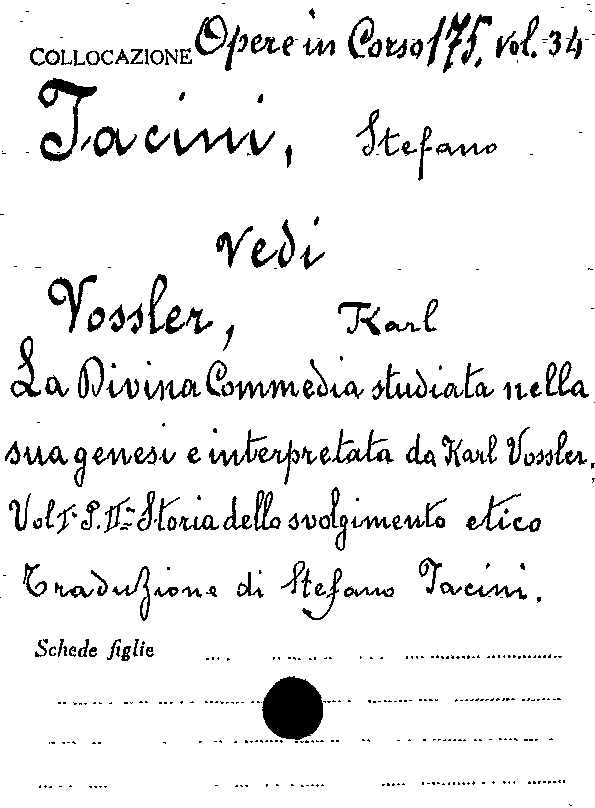 COLLOCAZIONE Opere in Corso 175, vol. 34
Jacini, Stefano
Vedi
Vossler, Karl
La Divina Commedia studiata nella
sua genesi e interpretata da Karl Vossler.
Vol I. P. II.- Storia dello svolgimento etico
Traduzione di Stefano Jacini.
Schede figlie